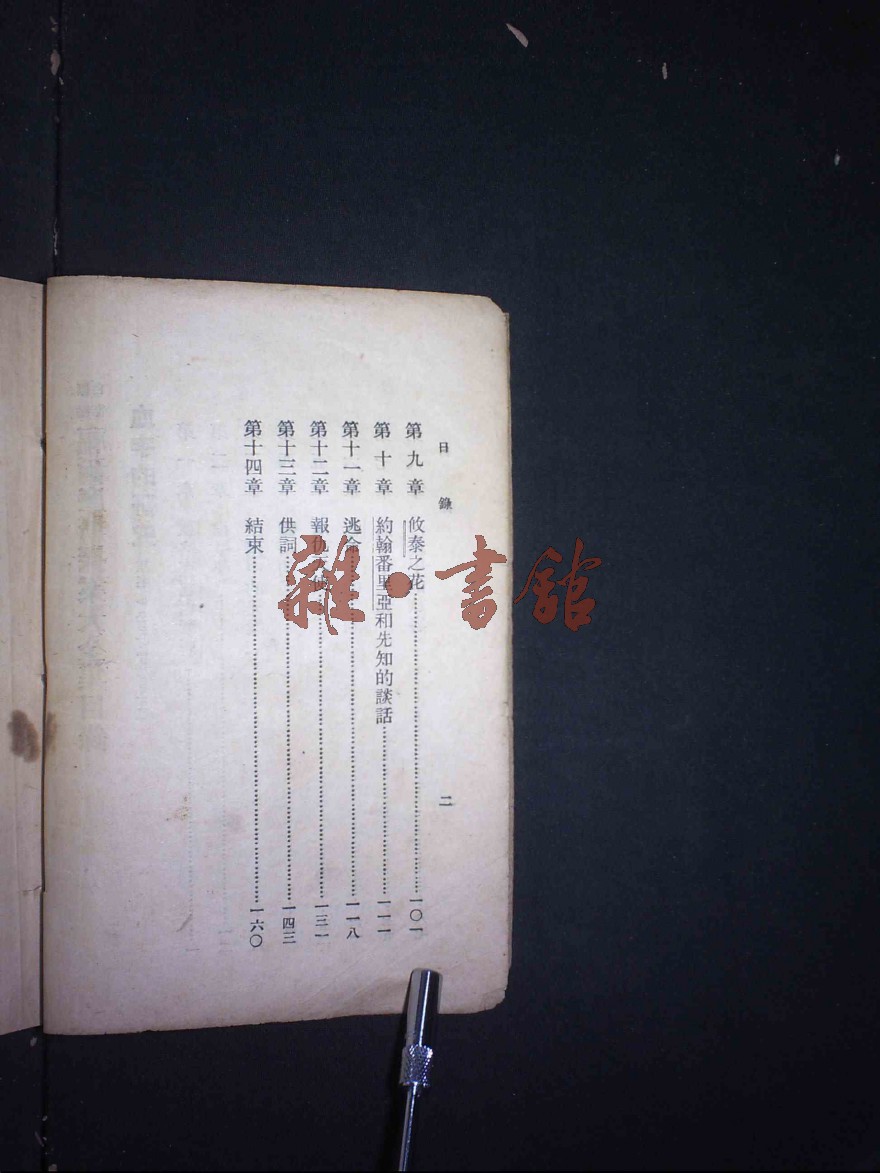 目錄 二
第九章 攸泰之花……一〇一
第十章 約翰番里亞和先知的談話……一一一
第十一章 逃命……一一八
第十二章 報仇……一三一
第十三章 供詞……一四三
第十四章 結束……一六〇
雜·書館